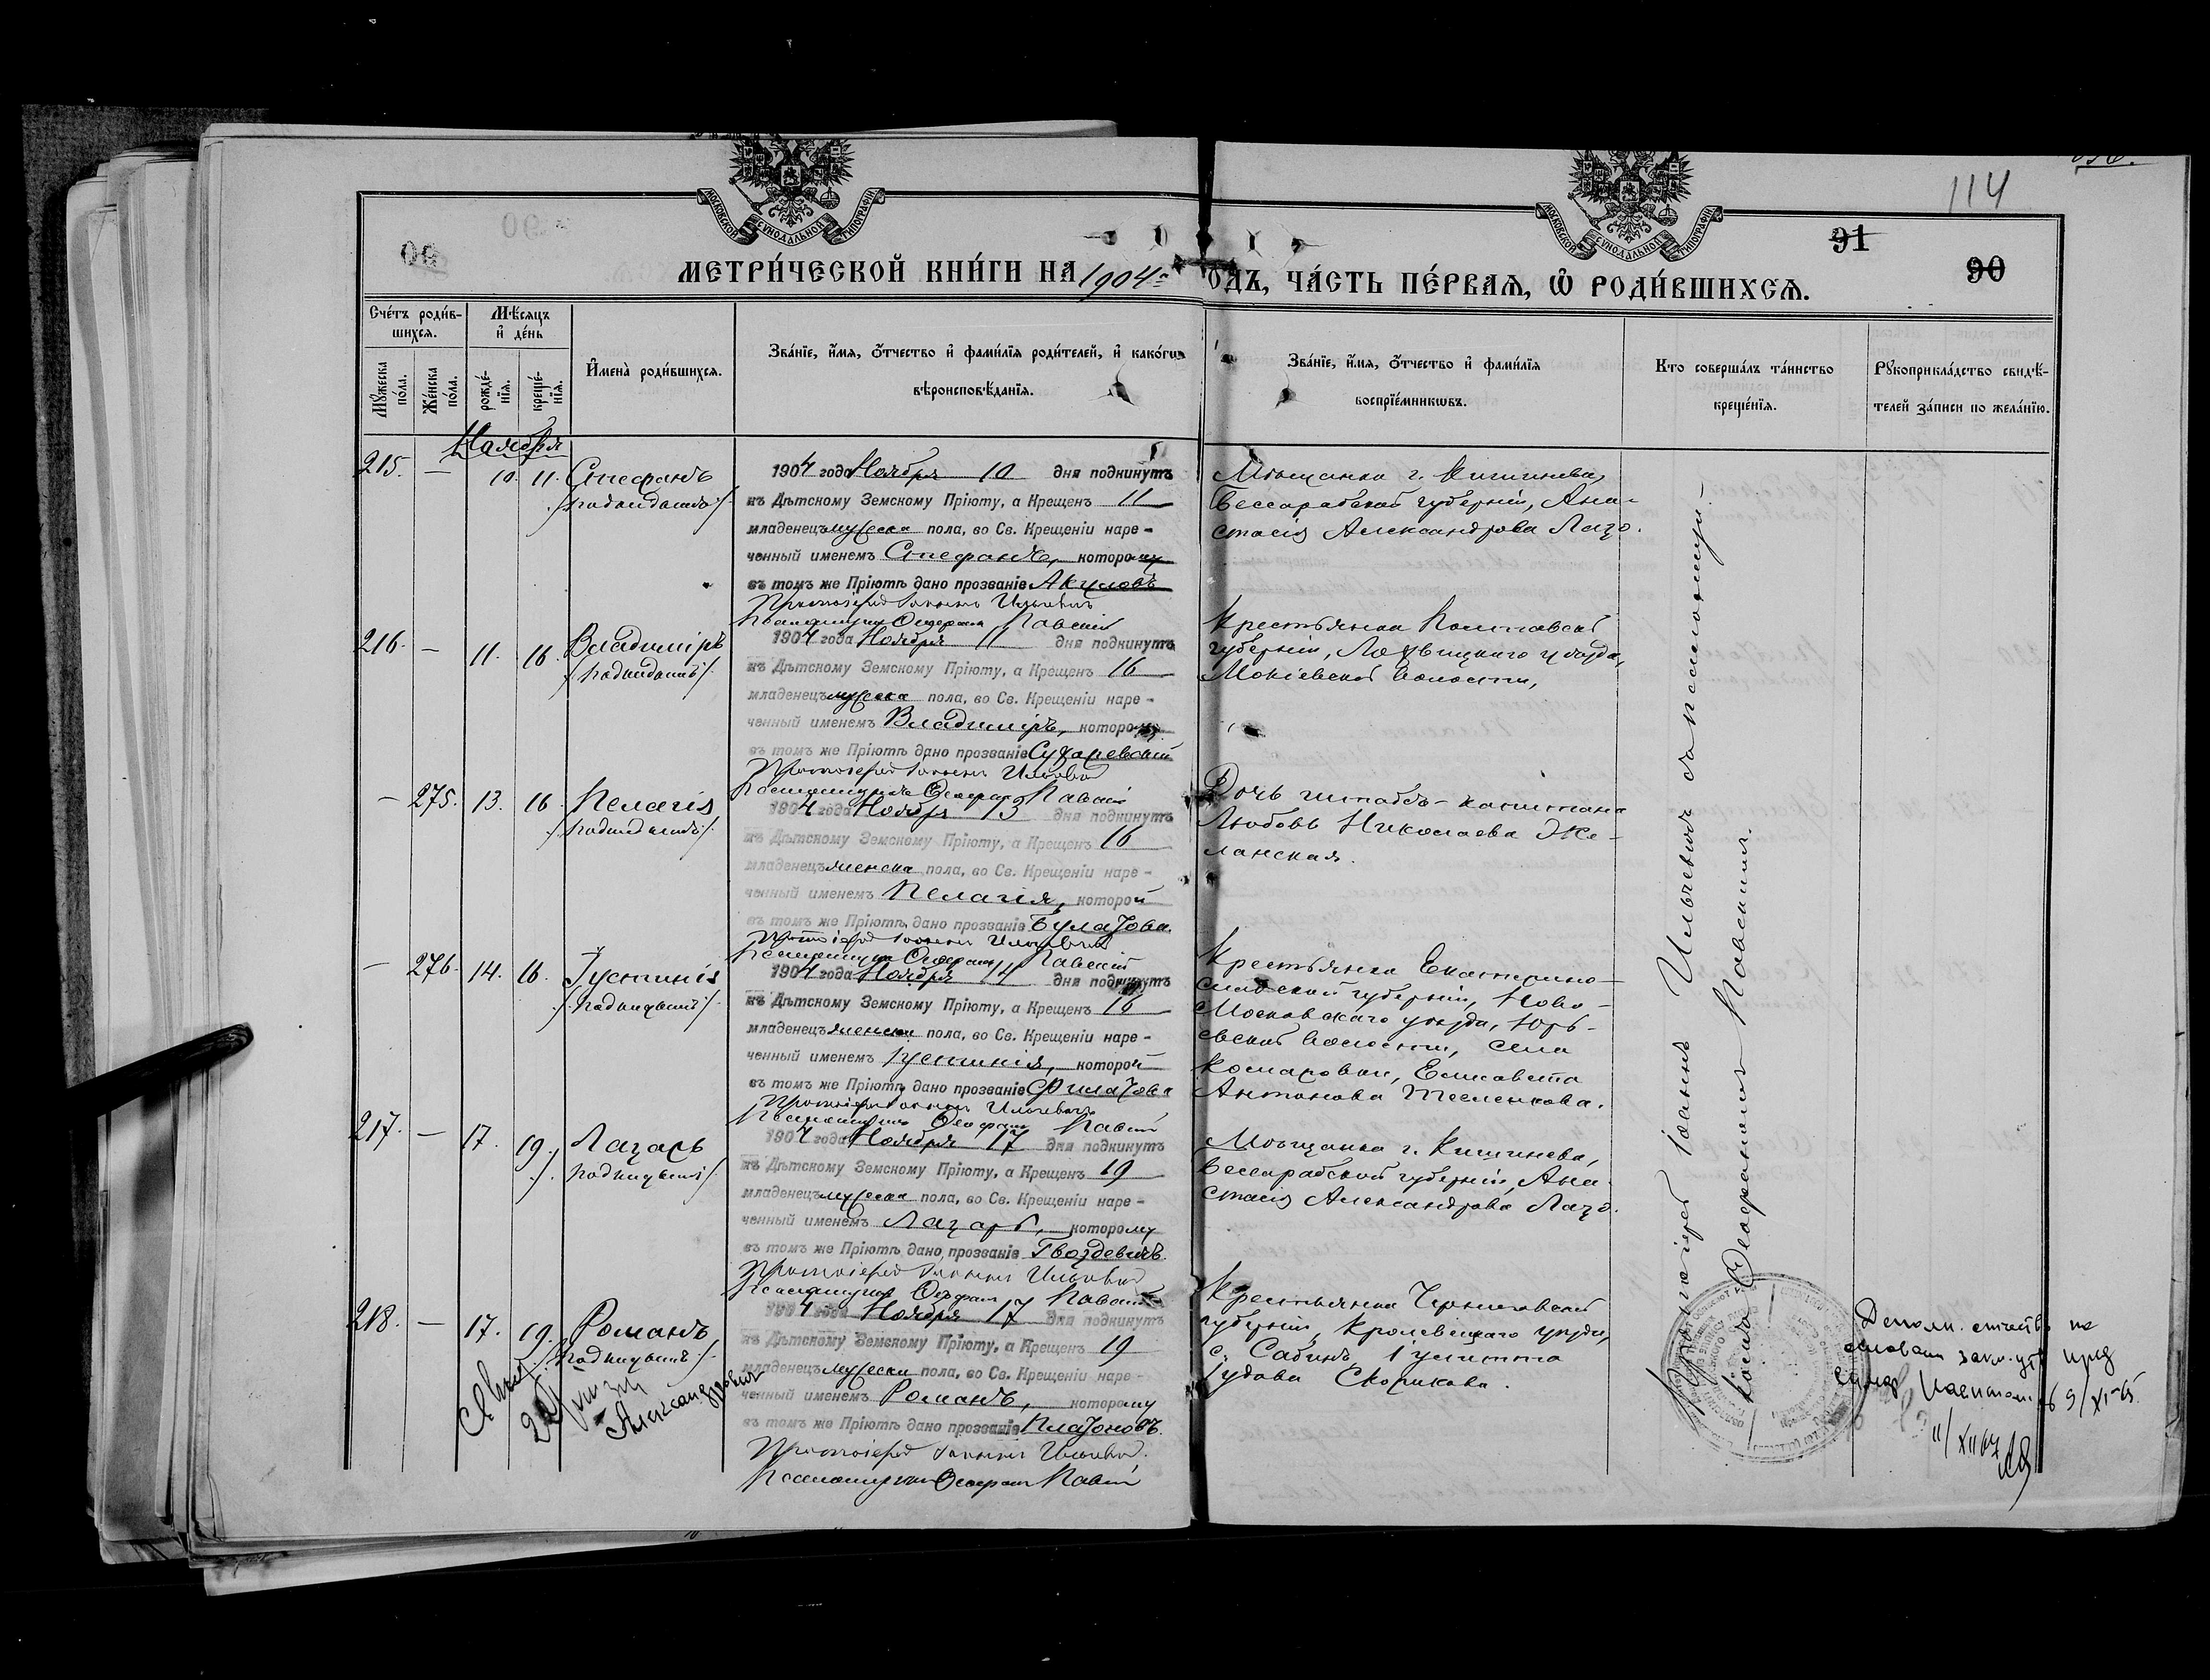 МОСКОВСКОЙ СУНОДАЛЬНОЙ ТИПОГРАФІИ
МОСКОВСКОЙ СУНОДАЛЬНОЙ ТИПОГРАФІИ
114
91
90
МЕТРИ́ЧЕСКОЙ КНИ́ГИ НА 1904 г
ОДЪ, ЧА́СТЬ ПЕ́РВАЯ, Ѽ РОДИ́ВШИХСЯ.
Сче́тъ роди́в-
шихся.
Мѣсяцъ
и де́нь
Мꙋжеска по́ла.
Же́нска по́ла.
рожде́-
нїя.
креще́-
нїя.
Имена̀ роди́вшихся.
Зва́нїе, и́мя, ѻ́тчество и фами́лїя роди́телей, и како́гѡ
вѣроисповѣ́данїя.
Зва́нїе, и́мя, ѻ́тчество и фами́лїя
воспрїе́мникѡвъ.
Кто̀ соверша́лъ та́инство
креще́нїя.
Рꙋкоприкла́дство свидѣ́-
телей за́писи по жела́нїю.
Ноября
215. — 10. 11. Стефанъ
/подкидышъ/
1904 года Ноября 10 дня подкинутъ
къ Дѣтскому Земскому Пріюту, а Крещенъ 11
младенецъ мужеска пола, во Св. Крещеніи наре-
ченный именемъ Стефанъ, которому
въ томъ же Пріютѣ дано прозваніе Акуловъ
Протоіерей Іоаннъ Ильчевичъ
Псаломщикъ Ѳеофанъ Павскій
Мѣщанка г. Кишинева,
Бессарабской губерніи, Ана-
стасія Александрова Лазо.
216. — 11. 16. Владиміръ
/подкидышъ/
1904 года Ноября 11 дня подкинутъ
къ Дѣтскому Земскому Пріюту, а Крещенъ 16
младенецъ мужеска пола, во Св. Крещеніи наре-
ченный именемъ Владиміръ, которому
въ томъ же Пріютѣ дано прозваніе
Протоіерей Іоаннъ Ильчевичъ
Псаломщикъ Ѳеофанъ Павскій
Крестьянка Полтавской
губерніи, Лохвицкаго уѣзда,
волости,
— 275. 13. 16. Пелагія
/подкидышъ/
1904 года Ноября 13 дня подкинутъ
къ Дѣтскому Земскому Пріюту, а Крещенъ 16
младенецъ женска пола, во Св. Крещеніи наре-
ченный именемъ Пелагія, которой
въ томъ же Пріютѣ дано прозваніе Булатова.
Протоіерей Іоаннъ Ильчевичъ
Псаломщикъ Ѳеофанъ Павскій
Дочь штабсъ-капитана
Любовь Николаева Же-
ланская.
— 276. 14. 16. Іустинія
/подкидышъ/
1904 года Ноября 14 дня подкинутъ
къ Дѣтскому Земскому Пріюту, а Крещенъ 16
младенецъ женска пола, во Св. Крещеніи наре-
ченный именемъ Іустинія, которой
въ томъ же Пріютѣ дано прозваніе Филатова
Протоіерей Іоаннъ Ильчевичъ
Псаломщикъ Ѳеофанъ Павскій
Крестьянка Екатерино-
славской губерніи, Ново-
Московскаго уѣзда, Юрь-
евской волости, села
Елисавета
Антонова Тесленкова.
217. — 17. 19. Лазарь
/подкидышъ/
1904 года Ноября 17 дня подкинутъ
къ Дѣтскому Земскому Пріюту, а Крещенъ 19
младенецъ мужеска пола, во Св. Крещеніи наре-
ченный именемъ Лазарь, которому
въ томъ же Пріютѣ дано прозваніе
Протоіерей Іоаннъ Ильчевичъ
Псаломщикъ Ѳеофанъ Павскій
Мѣщанка г. Кишинева,
Бессарабской губерніи, Ана-
стасія Александрова Лазо.
218. — 17. 19. Романъ,
/подкидышъ/
Александрович
1904 года Ноября 17 дня подкинутъ
къ Дѣтскому Земскому Пріюту, а Крещенъ 19
младенецъ мужеска пола, во Св. Крещеніи наре-
ченный именемъ Романъ, которому
въ томъ же Пріютѣ дано прозваніе Платоновъ.
Протоіерей Іоаннъ Ильчевичъ.
Псаломщикъ Ѳеофанъ Павскій
Крестьянка Черниговской
губерніи, Кролевецкаго уѣзда,
Скорикова.
Протоіерей Іоаннъ Ильчевичъ съ псаломщи-
комъ Ѳеофаномъ Павскимъ.
отчество на
основан